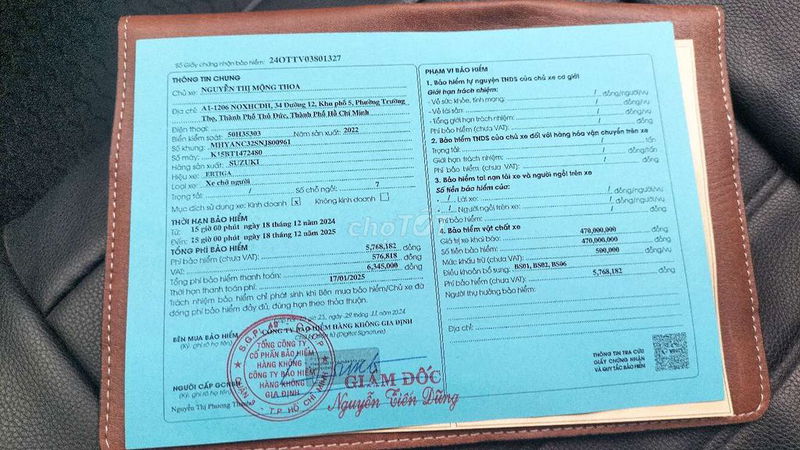 Số Giấy chứng nhận bảo hiểm: 24OTTV03801327
THÔNG TIN CHUNG
Chủ xe: NGUYỄN THỊ MỘNG THOA
Địa chỉ: A1-1206 NOXHCDH, 34 Đường 12, Khu phố 5, Phường Trường
Thọ, Thành Phố Thủ Đức, Thành Phố Hồ Chí Minh
Điện thoại:
Biển kiểm soát: 50H35303 Năm sản xuất: 2022
Số khung: MHYANC32SNJ800961
Số máy: K15BT1472480
Hãng sản xuất: SUZUKI
Hiệu xe: ERTIGA
Loại xe: Xe chở người
Trọng tải: / Số chỗ ngồi: 7
Mục đích sử dụng xe: Kinh doanh x Không kinh doanh
THỜI HẠN BẢO HIỂM
Từ: 15 giờ 00 phút ngày 18 tháng 12 năm 2024
Đến: 15 giờ 00 phút ngày 18 tháng 12 năm 2025
TỔNG PHÍ BẢO HIỂM
Phí bảo hiểm (chưa VAT): 5,768,182 đồng
VAT: 576,818 đồng
Tổng phí bảo hiểm thanh toán: 6,345,000 đồng
Thời hạn thanh toán phí: 17/01/2025
Trách nhiệm bảo hiểm chỉ phát sinh khi Bên mua bảo hiểm/Chủ xe đã
đóng phí bảo hiểm đầy đủ, đúng hạn theo thỏa thuận.
BÊN MUA BẢO HIỂM
(Ký, ghi rõ họ tên)
CÔNG TY BẢO HIỂM HÀNG KHÔNG GIA ĐỊNH
(Digital Signature)
TỔNG CÔNG TY
CỔ PHẦN BẢO HIỂM
HÀNG KHÔNG
CÔNG TY BẢO HIỂM
HÀNG KHÔNG
GIA ĐỊNH
T.P. HỒ CHÍ MINH
NGƯỜI CẤP
(Ký, ghi rõ họ tên)
Nguyễn Thị Phương
GIÁM ĐỐC
Nguyễn Tiến Dũng
PHẠM VI BẢO HIỂM
1. Bảo hiểm tự nguyện TNDS của chủ xe cơ giới
Giới hạn trách nhiệm:
- Về sức khỏe, tính mạng: / đồng/người/vụ
- Về tài sản: / đồng/vụ
- Tổng giới hạn trách nhiệm: / đồng/vụ
Phí bảo hiểm (chưa VAT): / đồng
2. Bảo hiểm TNDS của chủ xe đối với hàng hóa vận chuyển trên xe
Trọng tải: / tấn
Giới hạn trách nhiệm: / đồng/tấn
Phí bảo hiểm (chưa VAT): / đồng
3. Bảo hiểm tai nạn lái xe và người ngồi trên xe
Số tiền bảo hiểm của:
- / Lái xe: / đồng/người/vụ
- / Người ngồi trên xe: / đồng/người/vụ
Phí bảo hiểm: / đồng
4. Bảo hiểm vật chất xe
Giá trị xe khai báo: 470,000,000 đồng
Số tiền bảo hiểm: 470,000,000 đồng
Mức khấu trừ (chưa VAT): 500,000 đồng/vụ
Điều khoản bổ sung: BS01, BS02, BS06
Phí bảo hiểm (chưa VAT): 5,768,182 đồng
Người thụ hưởng bảo hiểm:
Địa chỉ:
THÔNG TIN TRA CỨU
GIẤY CHỨNG NHẬN
VÀ QUY TẮC BẢO HIỂM